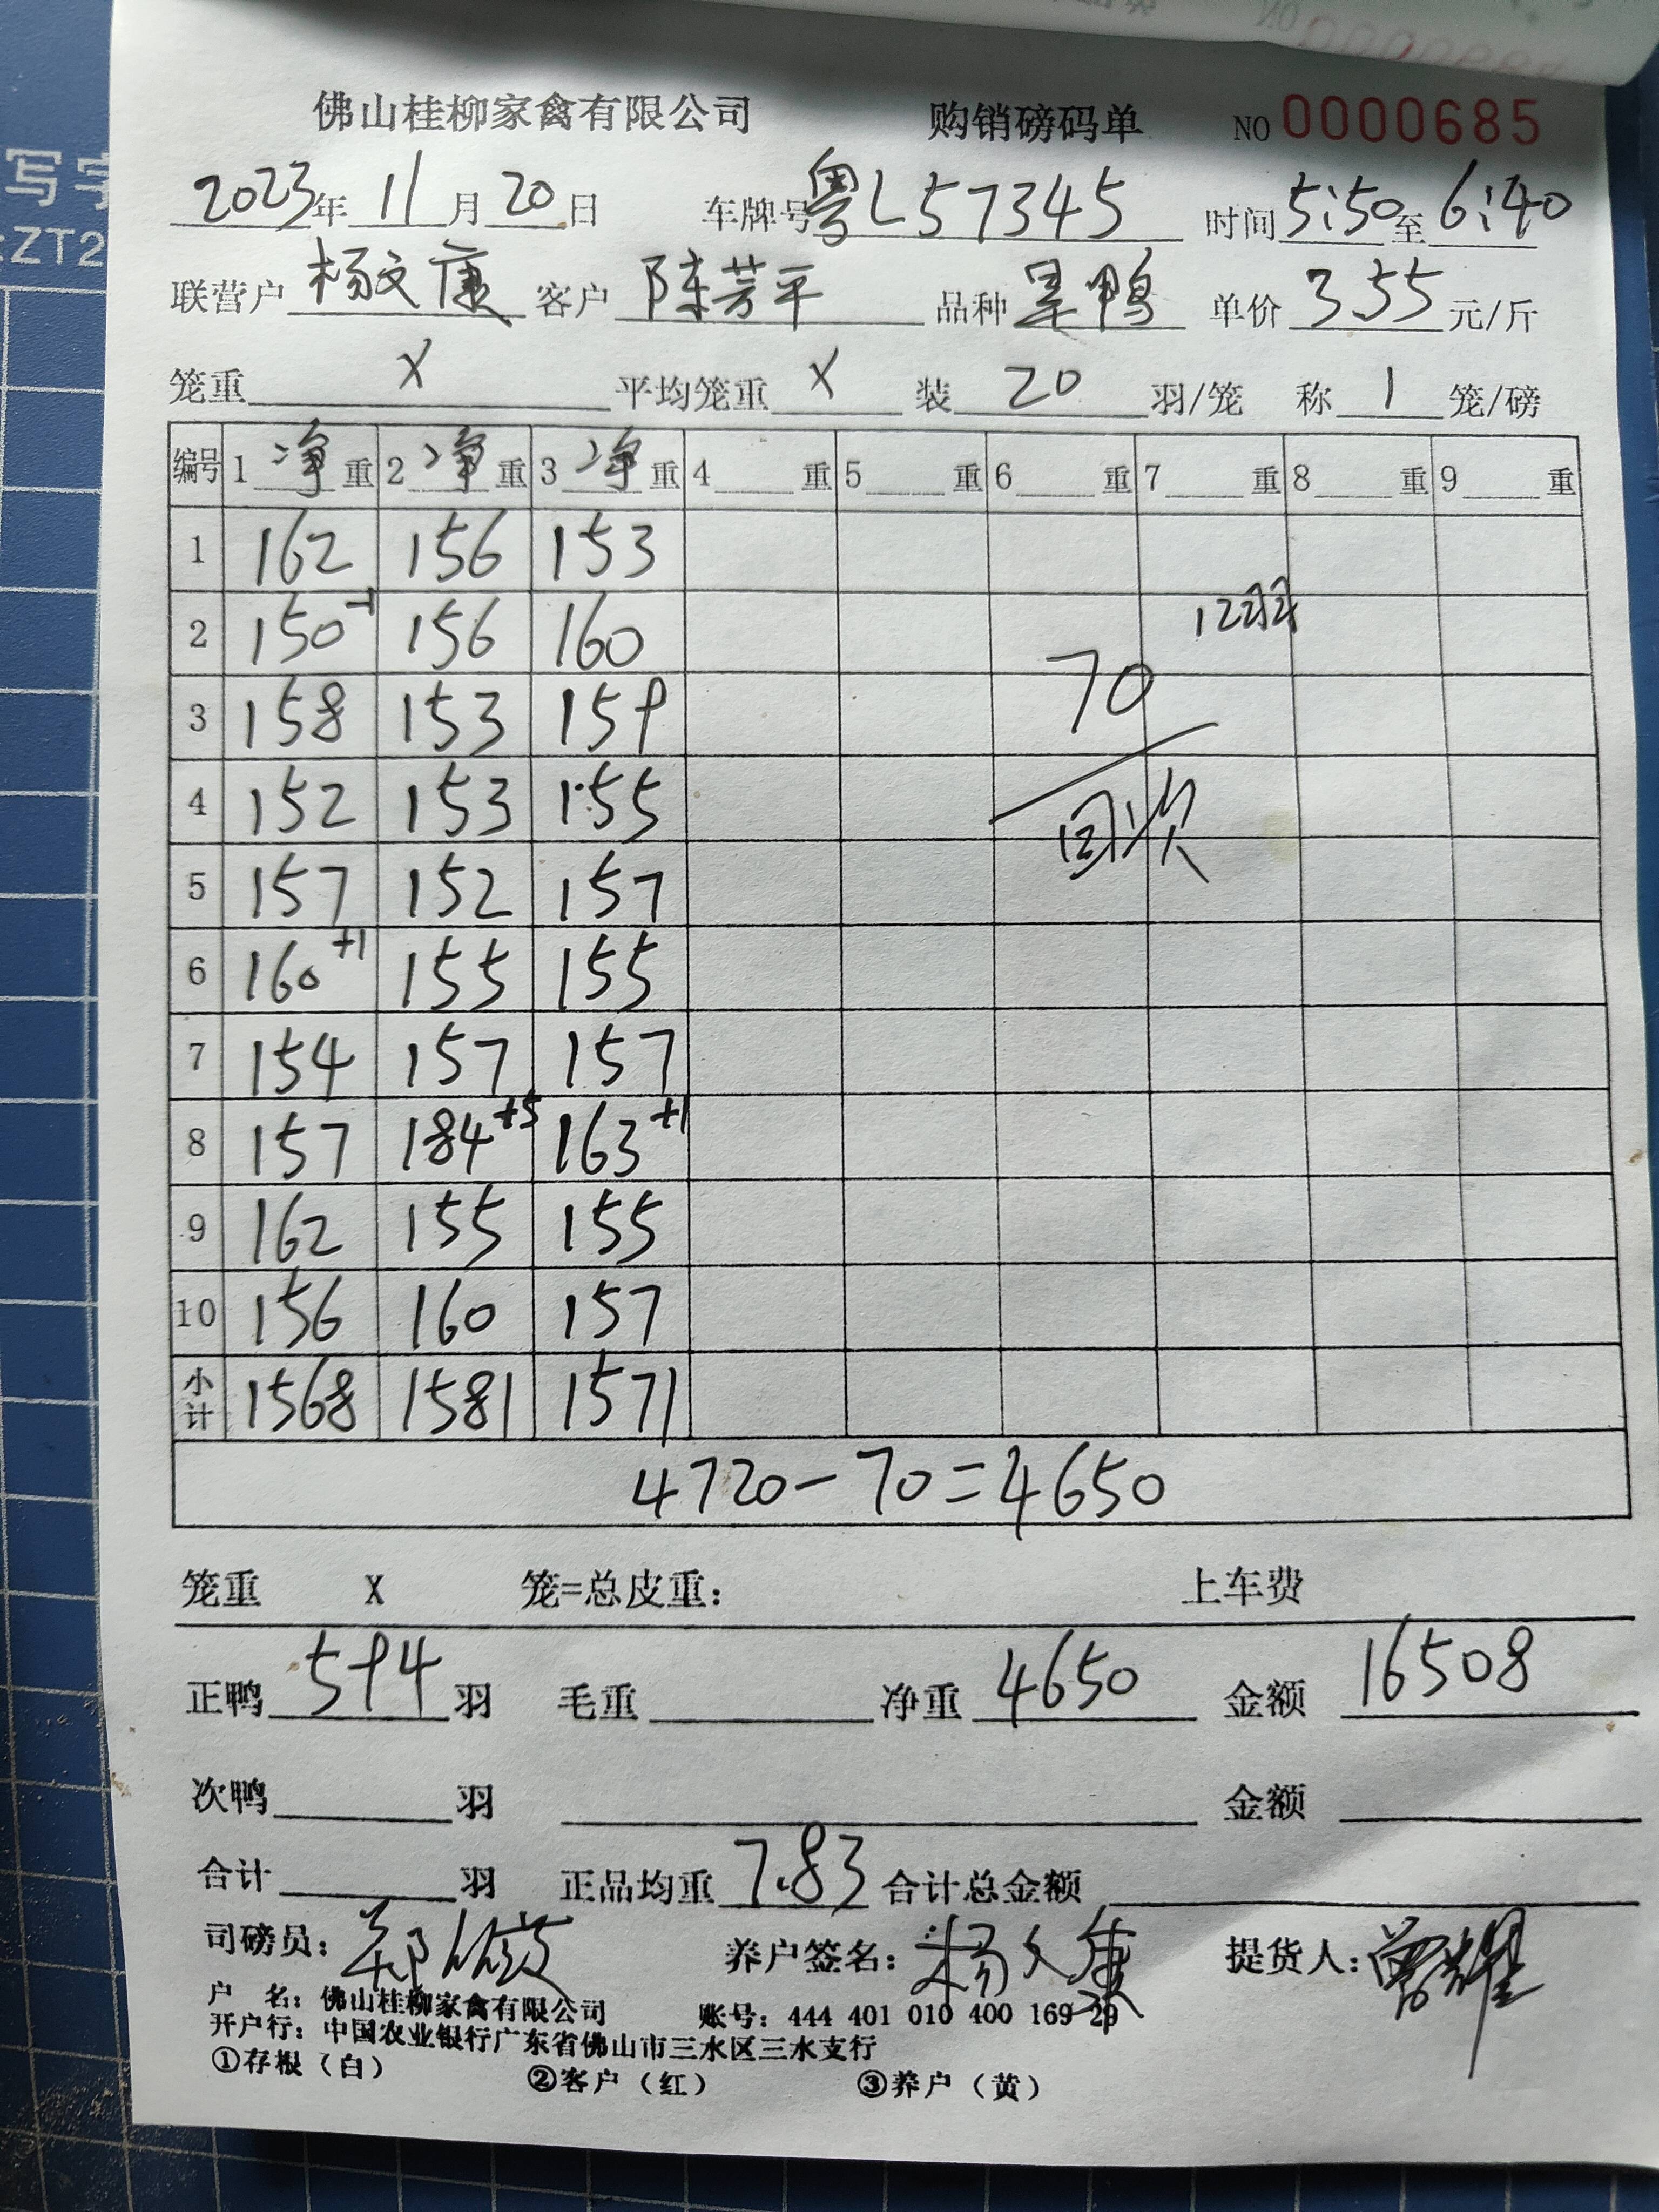 佛山桂柳家禽有限公司 购销磅码单 NO 0000685
2023年 11 月 20 日 车牌号 粤L57345 时间 5:50 至 6:40
联营户 杨文康 客户 陈芳平 品种 旱鸭 单价 3.55 元/斤
笼重 X 平均笼重 X 装 20 羽/笼 称 1 笼/磅
编号 1 净 重 2 净 重 3 净 重 4 重 5 重 6 重 7 重 8 重 9 重
1 162 156 153
2 150-1 156 160 12羽
3 158 153 159 70
4 152 153 155 回次
5 157 152 157
6 160+1 155 155
7 154 157 157
8 157 184+5 163+1
9 162 155 155
10 156 160 157
小计 1568 1581 1571
4720-70=4650
笼重 X 笼=总皮重: 上车费
正鸭 594 羽 毛重 净重 4650 金额 16508
次鸭 羽 金额
合计 羽 正品均重 7.83 合计总金额
司磅员: 养户签名: 杨文康 提货人:
户 名: 佛山桂柳家禽有限公司 账号: 444 401 010 400 169 29
开户行: 中国农业银行广东省佛山市三水区三水支行
①存根（白） ②客户（红） ③养户（黄）
写字
ZT2